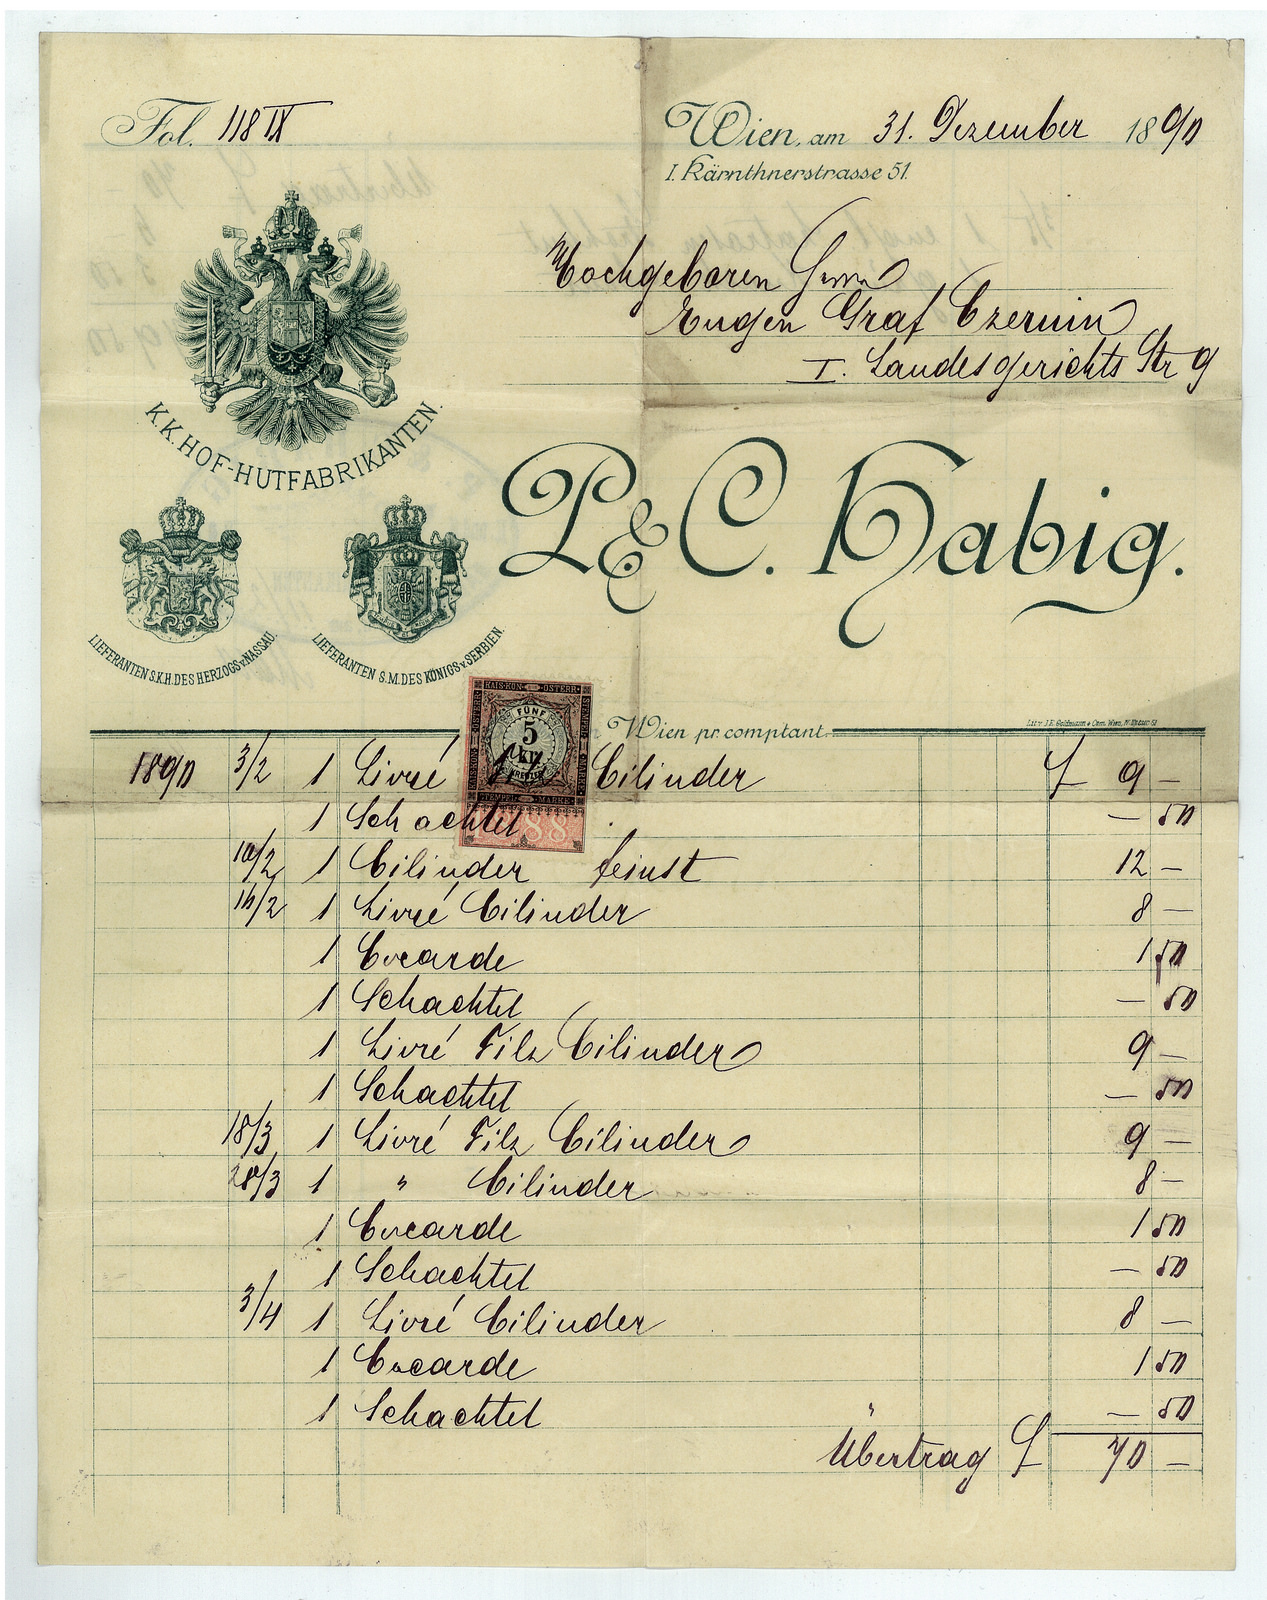 Fol. 118 IX
Wien, am 31. Dezember 1890
I. Kärnthnerstrasse 51.
Hochgeboren Herrn
Eugen Graf Czernin
I. Landesgerichts Str 9
K.K. HOF-HUTFABRIKANTEN.
P. & C. Habig.
LIEFERANTEN S.K.H. DES HERZOGS v. NASSAU.
LIEFERANTEN S.M. DES KÖNIGS v. SERBIEN.
KAIS. KÖN. ÖSTERR.
FÜNF
5
KR
KREUZER
STEMPEL MARKE
1888
Wien pr. comptant.
1890 3/2 1 Livré Cilinder f 9 —
1 Schachtel — 50
10/2 1 Cilinder feinst 12 —
16/2 1 Livré Cilinder 8 —
1 Cocarde 1 50
1 Schachtel — 50
1 Livré Filz Cilinder 9 —
1 Schachtel — 50
18/3 1 Livré Filz Cilinder 9 —
28/3 1 " Cilinder 8 —
1 Cocarde 1 50
1 Schachtel — 50
3/4 1 Livré Cilinder 8 —
1 Cocarde 1 50
1 Schachtel — 50
Übertrag f 70 —